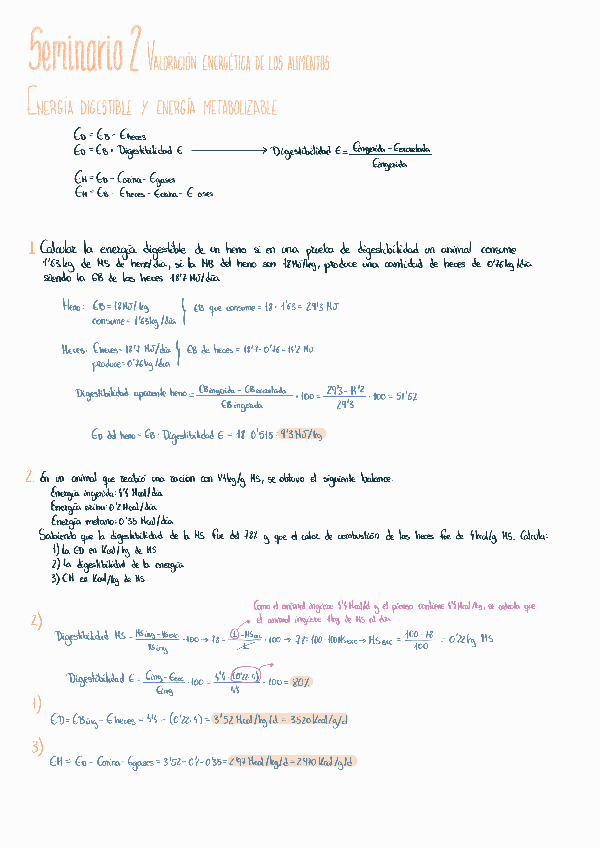 Seminario 2 VALORACIÓN ENERGÉTICA DE LOS ALIMENTOS
ENERGÍA DIGESTIBLE Y ENERGÍA METABOLIZABLE
ED = EB - Eheces
ED = EB · Digestibilidad E → Digestibilidad E = Eingerida - Eexcretada / Eingerida
EM = ED - Eorina - Egases
EM = EB - Eheces - Eorina - E gases
1 Calcular la energía digestible de un heno si en una prueba de digestibilidad un animal consume
1'63kg de MS de heno/día, si la MB del heno son 18MJ/kg, produce una cantidad de heces de 0'76kg/día
siendo la EB de las heces 18'7 MJ/día
Heno: EB = 18MJ/kg
consume = 1'63kg/día
EB que consume = 18 · 1'63 = 29'3 MJ
Heces: Eheces = 18'7 MJ/día
produce = 0'76kg/día
EB de heces = 18'7 · 0'76 = 14'2 MJ
Digestibilidad aparente heno = EBingerida - EBexcretada / EBingerida · 100 = 29'3 - 14'2 / 29'3 · 100 = 51'5%
ED del heno = EB · Digestibilidad E = 18 · 0'515 = 9'3 MJ/kg
2. En un animal que recibió una ración con 4'4kg/g MS, se obtuvo el siguiente balance:
Energía ingerida: 4'4 Mcal/día
Energía orina: 0'2 Mcal/día
Energía metano: 0'35 Mcal/día
Sabiendo que la digestibilidad de la MS fue del 78% y que el calor de combustión de las heces fue de 4kcal/g MS. Calcula:
1) la ED en Kcal/kg de MS
2) la digestibilidad de la energía
3) EM en Kcal/kg de MS
Como el animal ingiere 4'4 Mcal/d y el pienso contiene 4'4 Mcal/kg, se calcula que
el animal ingiere 1kg de MS al día
2)
Digestibilidad MS = MSing - MSexc / MSing · 100 → 78 = 1 - MSexc / 1 · 100 → 78 = 100 - 100MSexc → MSexc = 100 - 78 / 100 = 0'22kg MS
Digestibilidad E = Eing - Eexc / Eing · 100 = 4'4 - (0'22·4) / 4'4 · 100 = 80%
1)
ED = EBing - Eheces = 4'4 - (0'22·4) = 3'52 Mcal/kg/d = 3520 Kcal/g/d
3)
EM = ED - Eorina - Egases = 3'52 - 0'2 - 0'35 = 2'97 Mcal/kg/d = 2970 Kcal/g/d